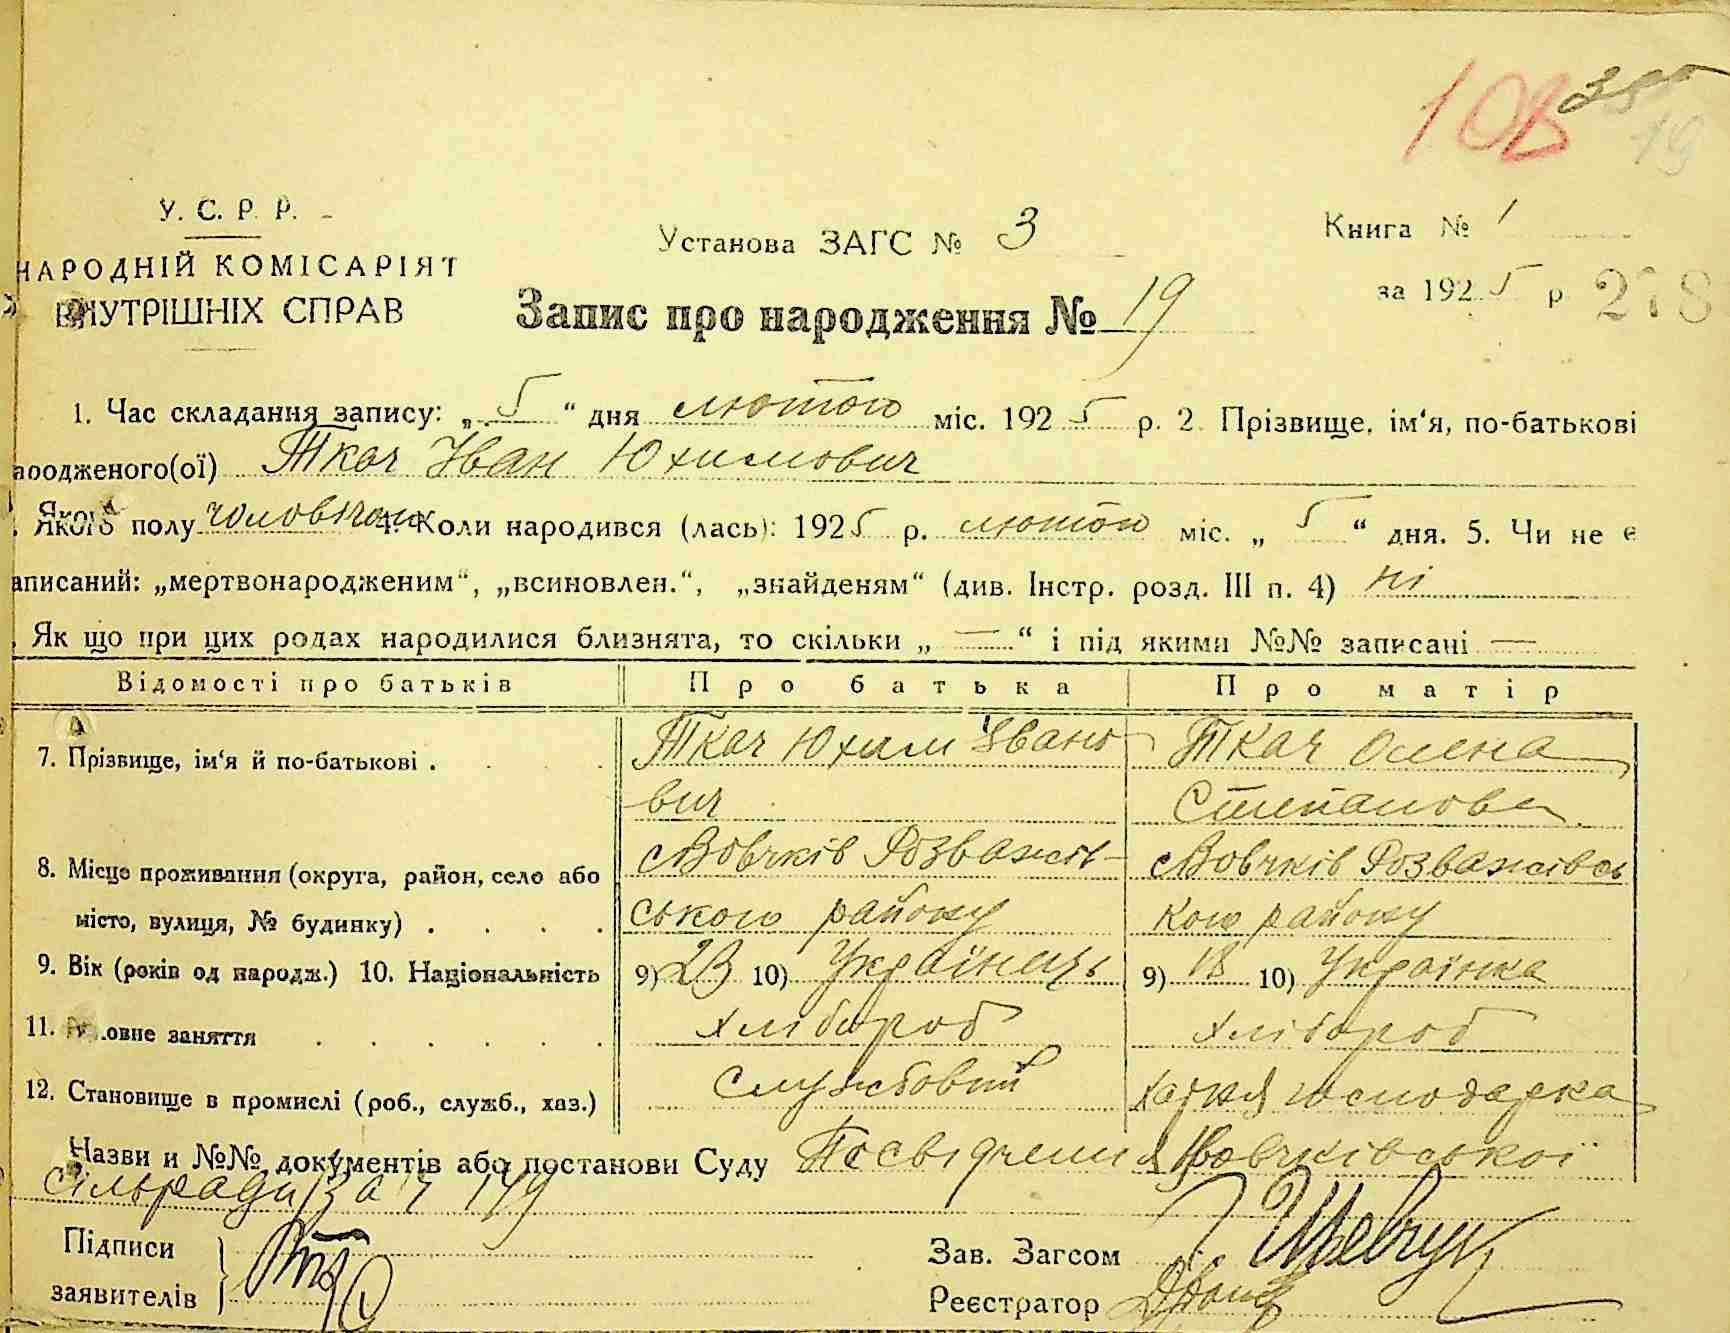 10В 38
19
У. С. Р. Р.
НАРОДНІЙ КОМІСАРІЯТ
ВНУТРІШНІХ СПРАВ
Установа ЗАГС № 3
Книга № 1
за 1925 р. 278
Запис про народження № 19
1. Час складання запису: „5“ дня лютого міс. 1925 р. 2. Прізвище, ім‘я, по-батькові
народженого(ої) Ткач Іван Юхимович
Якого полу чоловічого 4. Коли народився (лась): 1925 р. лютого міс. „5“ дня. 5. Чи не є
аписаний: „мертвонародженим“, „всиновлен.“, „знайденям“ (див. Інстр. розд. III п. 4) ні
. Як що при цих родах народилися близнята, то скільки „ — “ і під якими №№ записані —
Відомості про батьків Про батька Про матір
7. Прізвище, ім‘я й по-батькові . Ткач Юхим Івано Ткач Олена
вич Степанова
8. Місце проживання (округа, район, село або с Вовчків Розважів- с Вовчків Розважівсь
місто, вулиця, № будинку) . ського району кого району
9. Вік (років од народж.) 10. Національність 9) 23 10) Українець 9) 18 10) Українка
11. овне заняття хлібороб хлібороб
12. Становище в промислі (роб., служб., хаз.) Службовий хатня господарка
Назви и №№ документів або постанови Суду Посвідчення Вовчківської
сільради за ч 179
Підписи
заявителів
Зав. Загсом Шевчук
Реєстратор